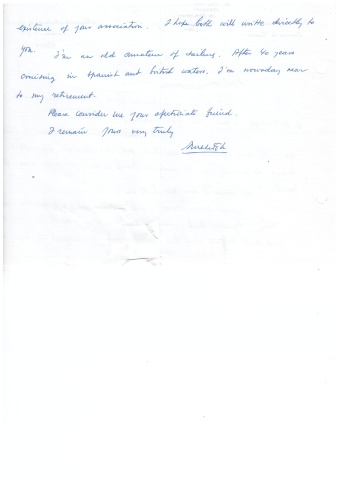 existence of your association. I hope both will write directly to
you.
I'm an old amateur of charlung. After 40 years
cruising in Spanish and british waters. I'm nowaday near
to my retirement.
Please consider me your affectionate friend.
I remain yours very truly